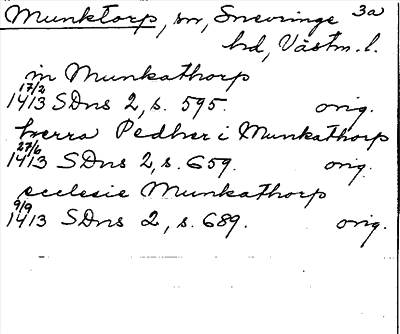 Munktorp, sn, Snevringe 3a
hd, Västm. l.
in Munkathorp
17/2
1413 SDns 2, s. 595. orig.
herra Pedher i Munkathorp
27/6
1413 SDns 2, s. 659. orig.
ecclesie Munkathorp
9/9
1413 SDns 2, s. 689. orig.